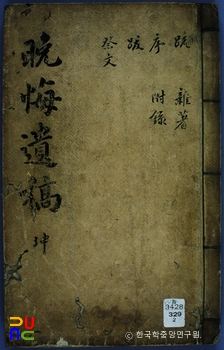 晩悔遺稿 坤
疏 雜著
序 附錄
跋
祭文
3428
329
2
PURC
© 한국학중앙연구원